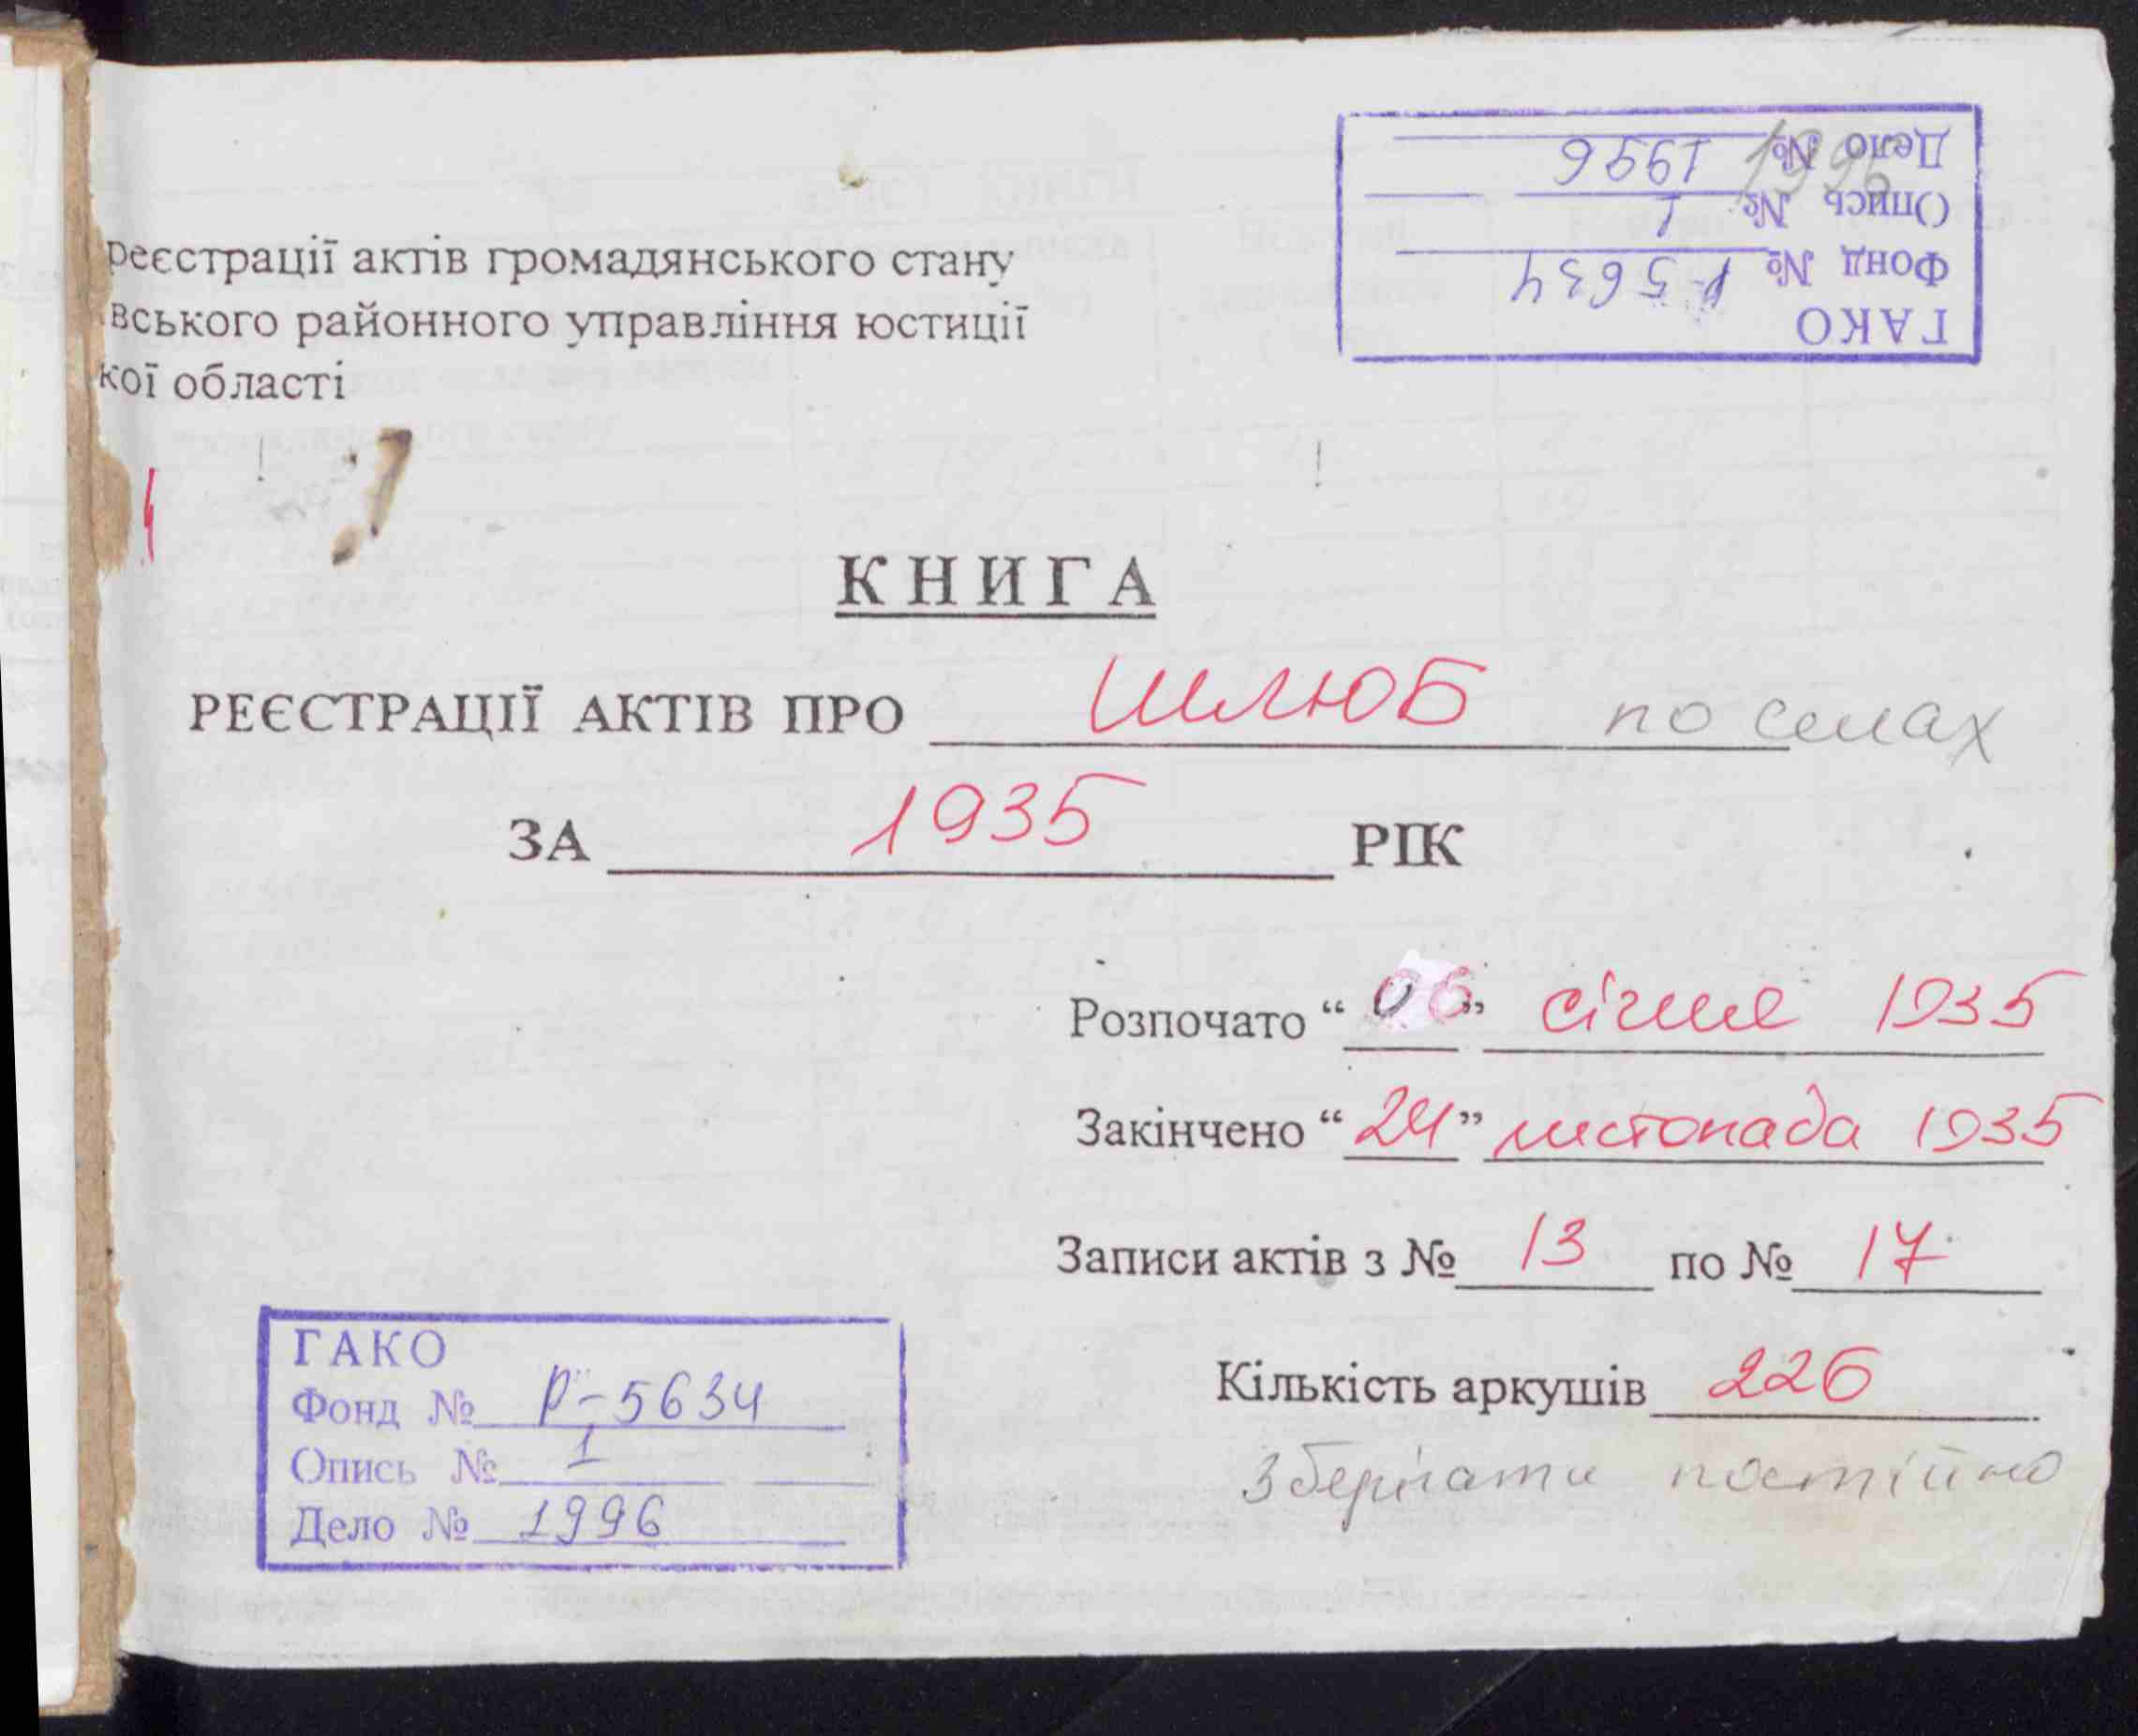 ГАКО
Фонд № Р-5634
Опись № 1
Дело № 1996
1996
реєстрації актів громадянського стану
вського районного управління юстиції
кої області
КНИГА
РЕЄСТРАЦІЇ АКТІВ ПРО шлюб по селах
ЗА 1935 РІК
Розпочато “06” січня 1935
Закінчено “24” листопада 1935
Записи актів з № 13 по № 17
Кількість аркушів 226
Зберігати постійно
ГАКО
Фонд № Р-5634
Опись № 1
Дело № 1996